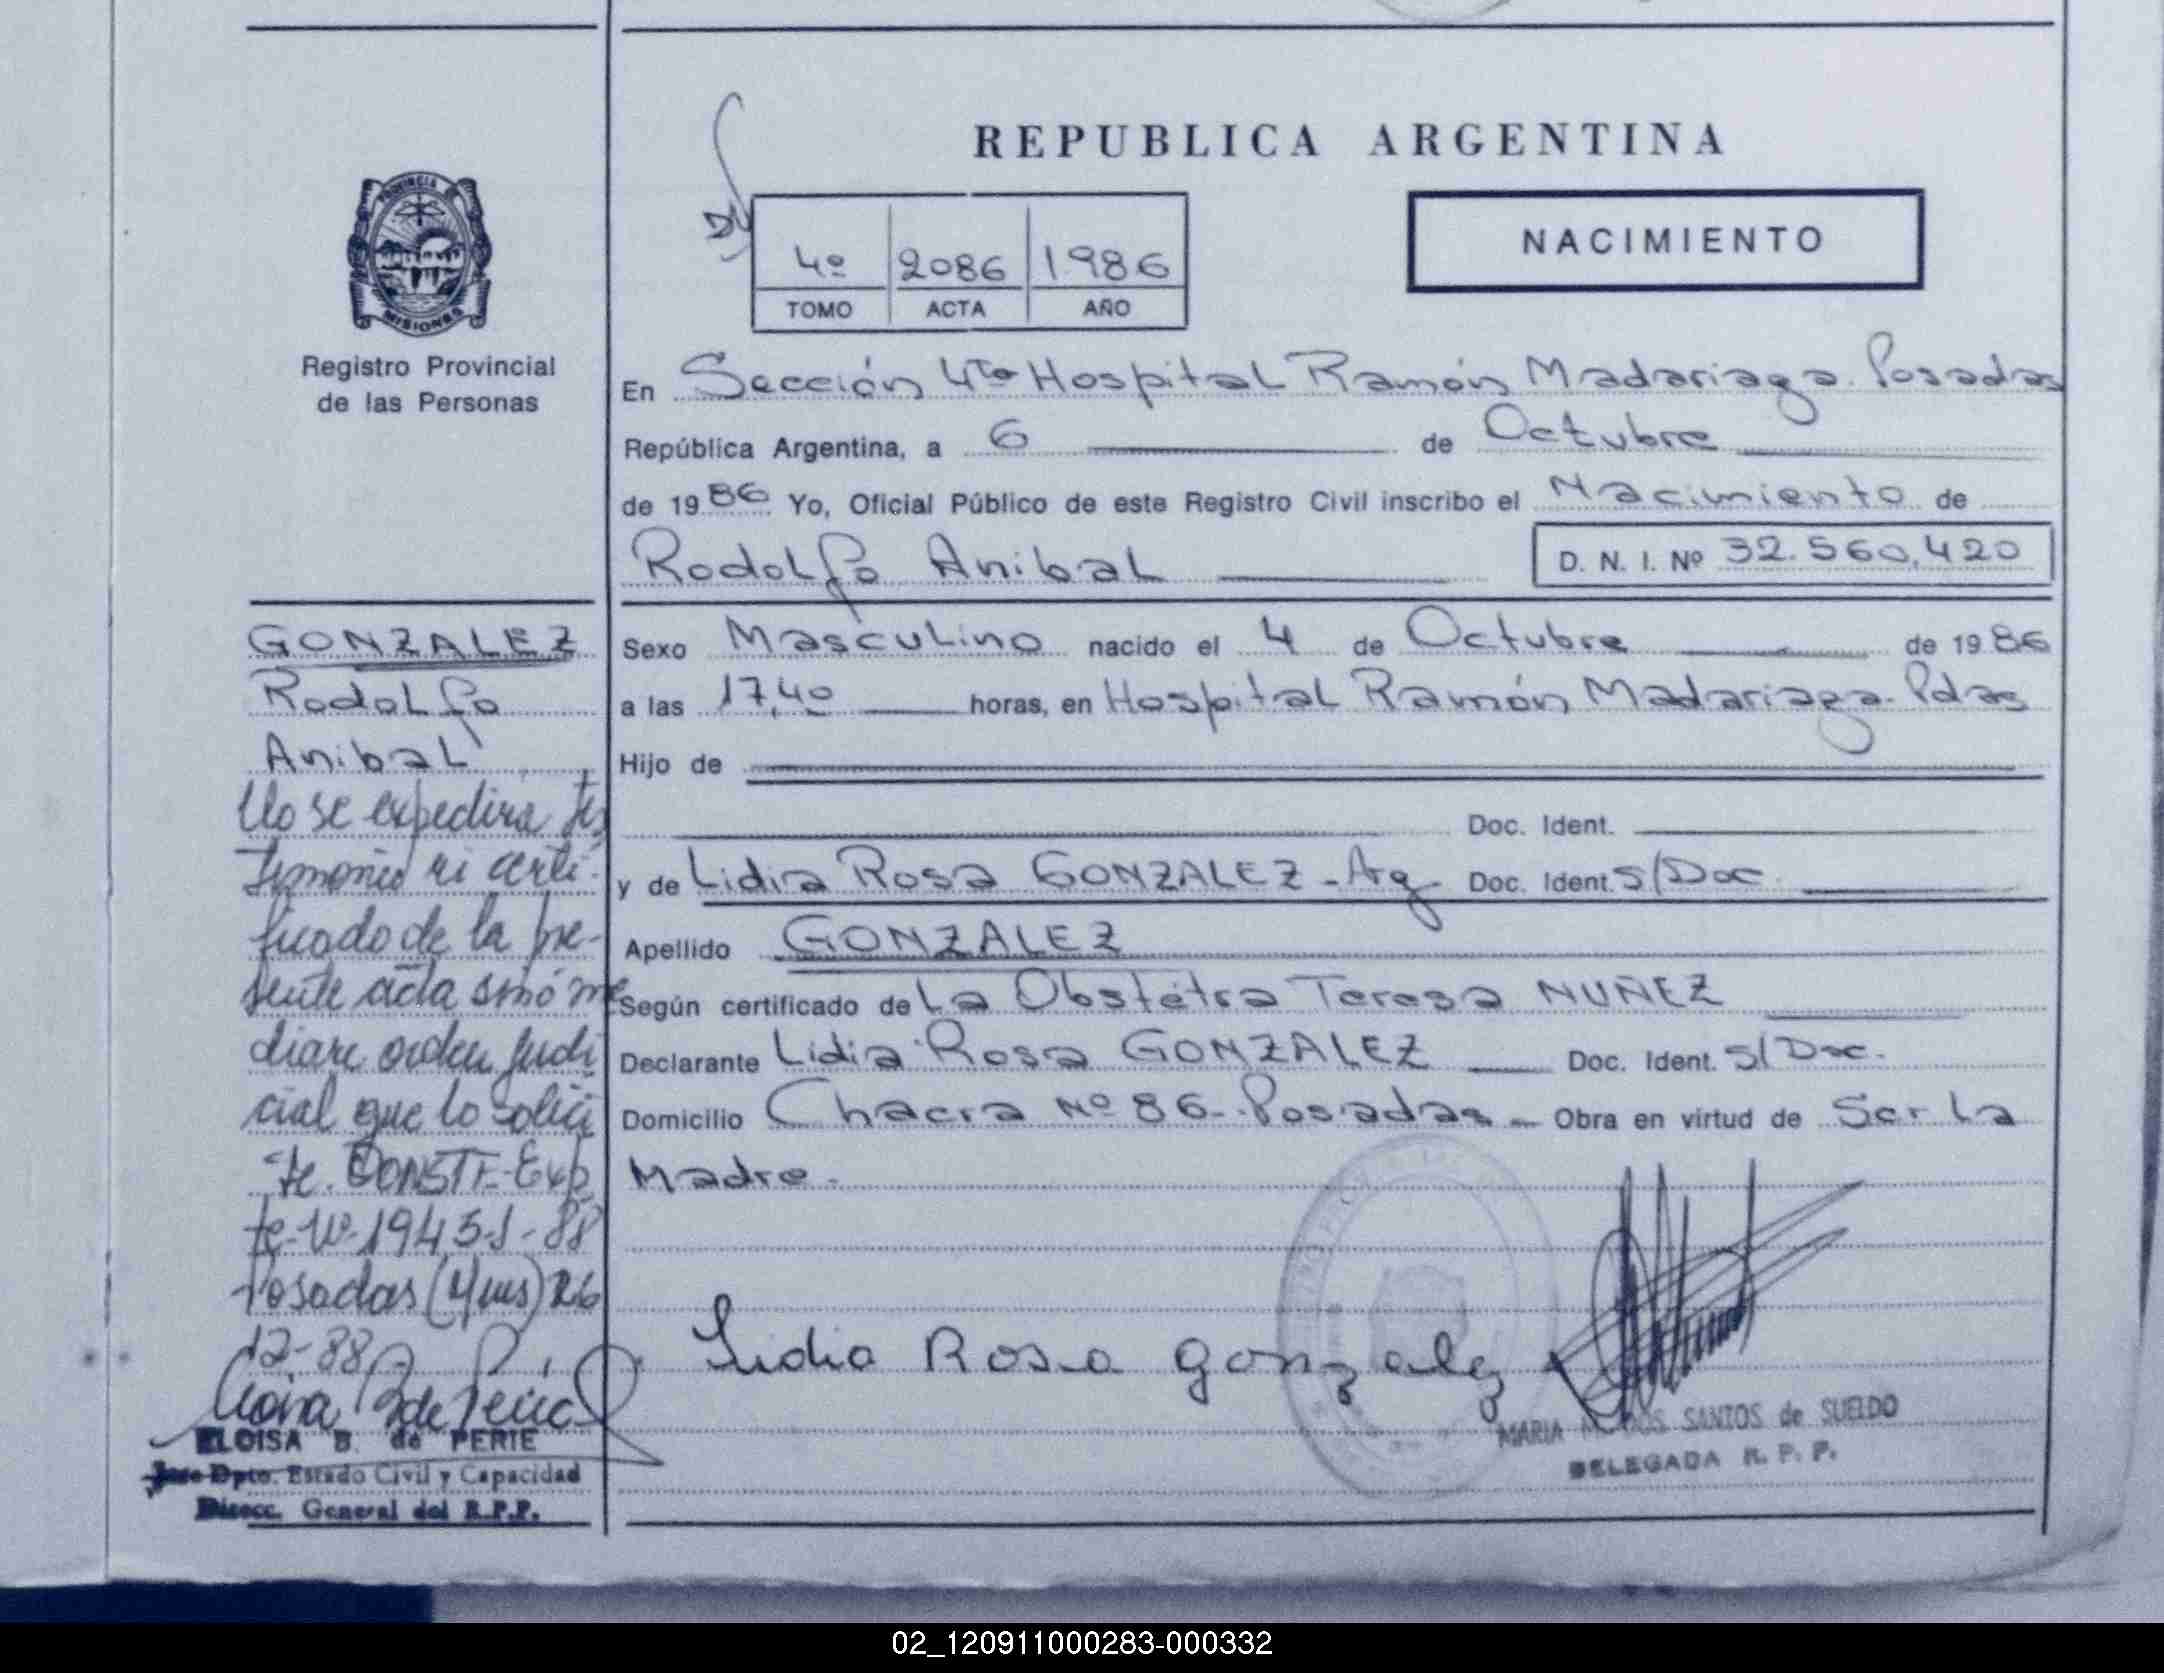 REPUBLICA ARGENTINA
NACIMIENTO
4º 2086 1986
TOMO ACTA AÑO
PROVINCIA DE
MISIONES
Registro Provincial
de las Personas
En Sección 4ta Hospital Ramón Madariaga. Posadas
República Argentina, a 6 de Octubre
de 1986 Yo, Oficial Público de este Registro Civil inscribo el Nacimiento de
Rodolfo Anibal D. N. I. Nº 32.560.420
Sexo Masculino nacido el 4 de Octubre de 1986
a las 17,40 horas, en Hospital Ramón Madariaga. Pdas
Hijo de
Doc. Ident.
y de Lidia Rosa GONZALEZ - Arg Doc. Ident. S/Doc.
Apellido GONZALEZ
Según certificado de La Obstétra Teresa NUÑEZ
Declarante Lidia Rosa GONZALEZ Doc. Ident. S/Doc.
Domicilio Chacra Nº 86 - Posadas - Obra en virtud de Ser La
Madre.
Lidia Rosa gonzalez
MARIA SANTOS de SUELDO
DELEGADA R. P. P.
GONZALEZ
Rodolfo
Anibal
No se expedira tes
timonio ni certi-
ficado de la pre-
sente acta sinó me
diare orden judi
cial que lo solici
te. CONSTE-Exp
te-Nº-1945-J-88
Posadas (Mnes) 26
12-88
ELOISA B. de PERIE
Jefe Dpto. Estado Civil y Capacidad
Direcc. General del R.P.P.
02_120911000283-000332